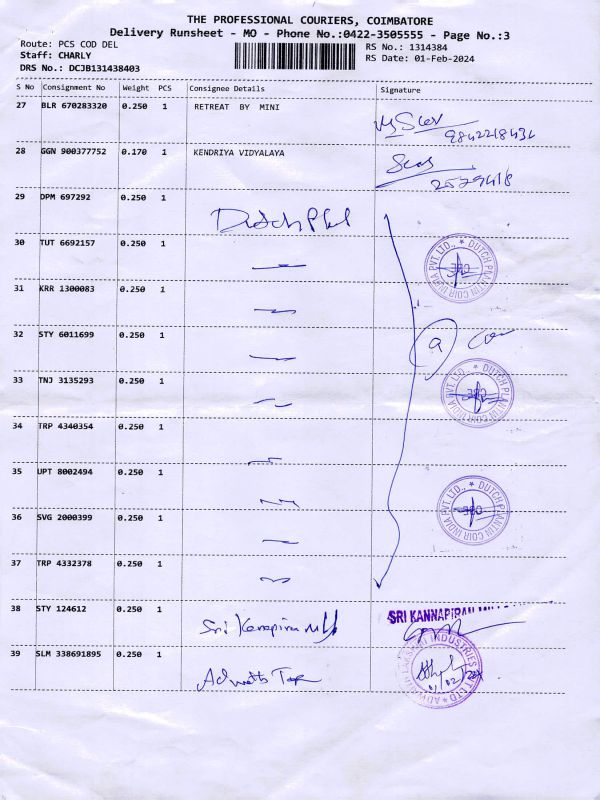 THE PROFESSIONAL COURIERS, COIMBATORE
Delivery Runsheet - MO - Phone No.:0422-3505555 - Page No.:3
Route: PCS COD DEL
RS No.: 1314384
Staff: CHARLY
RS Date: 01-Feb-2024
DRS No.: DCJB131438403
S No Consignment No Weight PCS Consignee Details Signature
27 BLR 670283320 0.250 1 RETREAT BY MINI
9842218434
28 GGN 900377752 0.170 1 KENDRIYA VIDYALAYA
2579418
29 DPM 697292 0.250 1
30 TUT 6692157 0.250 1
DUTCH PLANTIN COIR INDIA PVT. LTD.,
31 KRR 1300083 0.250 1
32 STY 6011699 0.250 1
9
33 TNJ 3135293 0.250 1
DUTCH PLANTIN COIR INDIA PVT. LTD.,
34 TRP 4340354 0.250 1
35 UPT 8002494 0.250 1
DUTCH PLANTIN COIR INDIA PVT. LTD.,
36 SVG 2000399 0.250 1
37 TRP 4332378 0.250 1
38 STY 124612 0.250 1 Sri
SRI KANNAPIRAN
39 SLM 338691895 0.250 1
INDUSTRIES PVT LTD